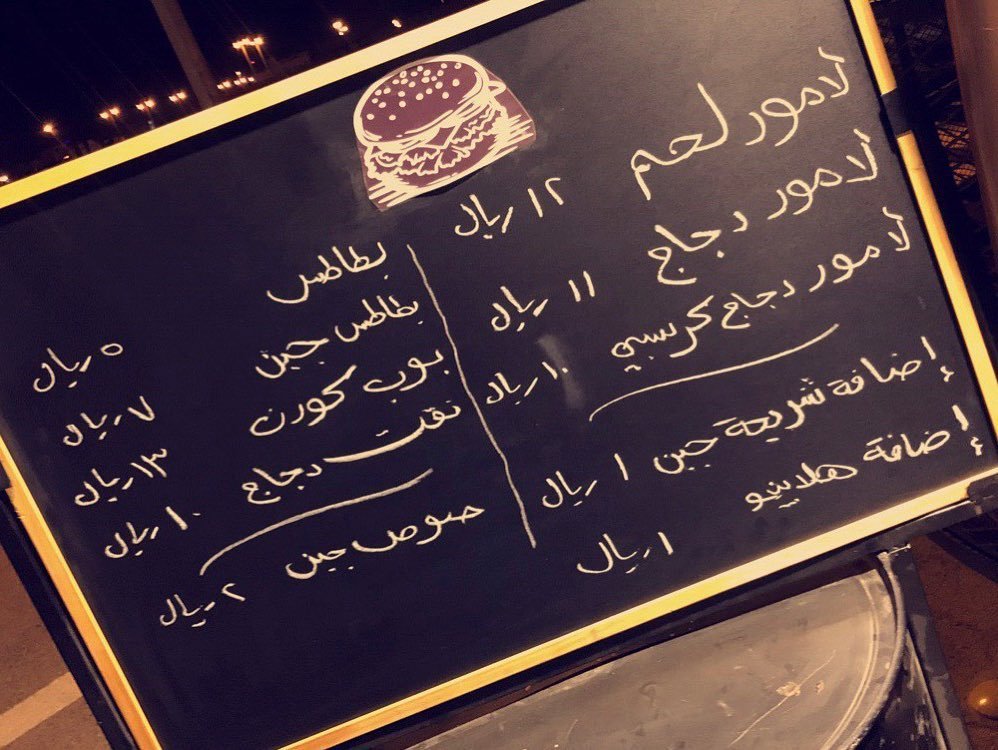 لامور لحم ١٢ ريال
لامور دجاج ١١ ريال
لامور دجاج كرسبي ١٠ ريال
إضافة شريحة جبن ١ ريال
إضافة هلابينو ١ ريال
بطاطس ٥ ريال
بطاطس جبن ٧ ريال
بوب كورن ١٣ ريال
نقت دجاج ١٠ ريال
صوص جبن ٢ ريال